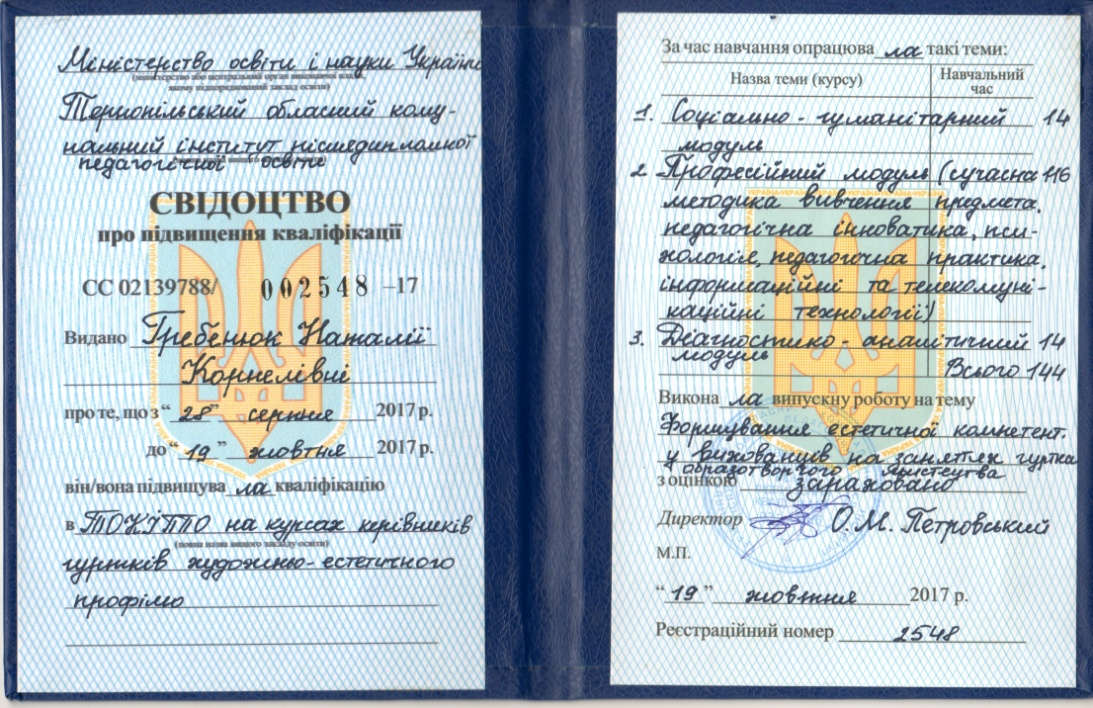 Міністерство освіти і науки України
(міністерство або центральний орган виконавчої влади,
якому підпорядкований заклад освіти)
Тернопільський обласний кому-
нальний інститут післядипломної
педагогічної освіти
СВІДОЦТВО
про підвищення кваліфікації
СС 02139788/ 002548 –17
Видано Гребенюк Наталії
Корнелівні
про те, що з “ 28 ” серпня 2017 р.
до “ 19 ” жовтня 2017 р.
він/вона підвищува ла кваліфікацію
в ТОКІППО на курсах керівників
(повна назва вищого закладу освіти)
гуртків художньо-естетичного
профілю
За час навчання опрацюва ла такі теми:
Назва теми (курсу) Навчальний
час
1. Соціально - гуманітарний 14
модуль
2. Професійний модуль (сучасна 116
методика вивчення предмета,
педагогічна інноватика, пси-
хологія, педагогічна практика,
інформаційні та телекомуні-
каційні технології)
3. Діагностико - аналітичний 14
модуль
Всього 144
Викона ла випускну роботу на тему
Формування естетичної компетент.
у вихованців на заняттях гуртка
образотворчого мистецтва
з оцінкою зараховано
Директор О.М. Петровський
М.П.
“ 19 ” жовтня 2017 р.
Реєстраційний номер 2548